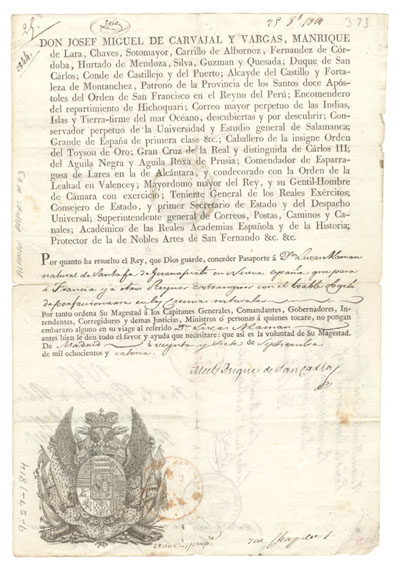 25 7º 1814
373
DON JOSEF MIGUEL DE CARVAJAL Y VARGAS, MANRIQUE
de Lara, Chaves, Sotomayor, Carrillo de Albornoz, Fernandez de Cór-
doba, Hurtado de Mendoza, Silva, Guzman y Quesada; Duque de San
Cárlos; Conde de Castillejo y del Puerto; Alcayde del Castillo y Forta-
leza de Montanchez, Patrono de la Provincia de los Santos doce Após-
toles del Orden de San Francisco en el Reyno del Perú; Encomendero
del repartimiento de Hichoquari; Correo mayor perpetuo de las Indias,
Islas y Tierra-firme del mar Océano, descubiertas y por descubrir; Con-
servador perpetuo de la Universidad y Estudio general de Salamanca;
Grande de España de primera clase &c.; Caballero de la insigne Orden
del Toyson de Oro; Gran Cruz de la Real y distinguida de Cárlos III;
del Aguila Negra y Aguila Roxa de Prusia; Comendador de Esparra-
gosa de Lares en la de Alcántara, y condecorado con la Orden de la
Lealtad en Valencey; Mayordomo mayor del Rey, y su Gentil-Hombre
de Cámara con exercicio; Teniente General de los Reales Exércitos;
Consejero de Estado, y primer Secretario de Estado y del Despacho
Universal; Superintendente general de Correos, Postas, Caminos y Ca-
nales; Académico de las Reales Academias Española y de la Historia;
Protector de la de Nobles Artes de San Fernando &c. &c.
Por quanto ha resuelto el Rey, que Dios guarde, conceder Pasaporte á Dn. Lucas Alaman
natural de Santafé de Guanajuato en Nueva España que pasa
á Francia y á otros Reynos extrangeros con el loable objeto
de perfeccionarse en las ciencias naturales
Por tanto ordena Su Magestad á los Capitanes Generales, Comandantes, Gobernadores, In-
tendentes, Corregidores y demas Justicias, Ministros ó personas á quienes tocare, no pongan
embarazo alguno en su viage al referido Dn. Lucas Alaman
antes bien le den todo el favor y ayuda que necesitare: que así es la voluntad de Su Magestad.
De Madrid á veynte y siete de Septiembre
de mil ochocientos y catorce
El Duque de San Carlos
9-27-1814